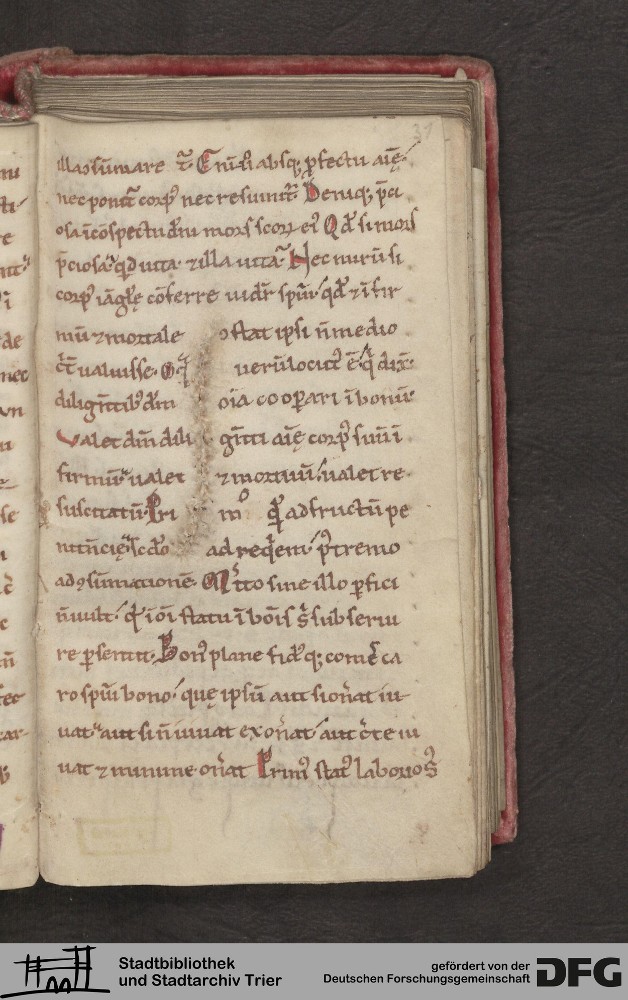 37
illa ↄsūmare
absq; ꝓfectu aīę
nec ponit᷑ corpꝰ nec resumit᷑ Deniq; p̄ci
osa ī cōspectu dn̄i mors scoꝝ eiꝰ Qd̓ si mors
p̄ciosa qd uita ⁊ illa uita Nec mirū si
corpꝰ conferre uidet᷑
mū ⁊ mortale ostat ipsi n̄ medio
ualuisse uerū locutꝰ ē q̇ dix̄
diligentibꝰ dm̄ oīa cooꝑari ī bonū
Valet dm̄ dili genti aīę corpꝰ suū ī
firmū ualet ⁊ mortuū ualet re
suscitatū Pri mo ad fructū pe
nitn̄cię scd̓o ad req̇em postremo
ad ↄsūmationē Mito sine illo ꝑfici
n̄ uult q̄ ī oī statu ī bonis s̄ subserui
re ꝑsentit Bonꝰ plane fidꝰq; comes ca
ro spūi bono quę ipsū aut si on̄at iu
uat aut si n̄ iuuat exon̄at aut c̄te iu
uat ⁊ minime on̄at Primꝰ statꝰ laborios
Stadtbibliothek
und Stadtarchiv Trier
gefördert von der
Deutschen Forschungsgemeinschaft
DFG